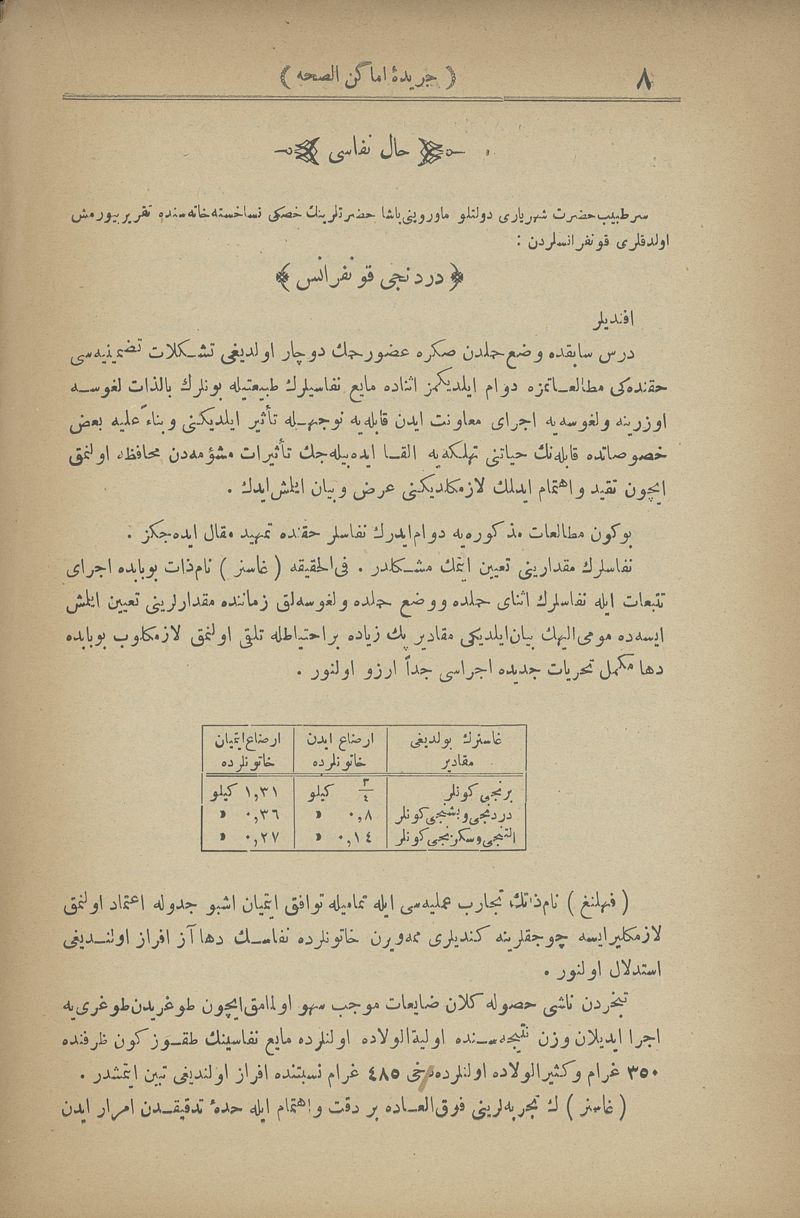 ٨
( جريدهٔ اماكن الصحه )
حال نفاسى
سرطبيب حضرت شهريارى دولتلو ماورويى پاشا حضرتلرينك خصكى نسا خسته خانه سنده تقرير بيورمش
اولدقلرى قونفرانسلردن :
دردنجى قونفرانس
افنديلر
درس سابقده وضع حملدن صكره عضورحمك دوچار اولديغى تشكلات تضمينيه سى
حقنده كى مطالعاتمزه دوام ايلديكمز اثناده مايع نفاسيلرك طبيعتيله بونلرك بالذات لغوسه
اوزرينه ولغوسه يه اجراى معاونت ايدن قابله يه نوجهله تأثير ايلديكنى وبناءً عليه بعض
خصوصاتده قابله نك حياتنى تهلكه يه القا ايده بيله جك تأثيرات مشؤمه دن محافظه اولنمق
ايچون تقيد واهتمام ايدلمك لازمكلديكنى عرض وبيان ايلمش ايدك .
بوكون مطالعات مذكوره يه دوام ايدرك نفاسلر حقنده تمهيد مقال ايده جكز .
نفاسلرك مقدارينى تعيين ايتمك مشكلدر . فى الحقيقه ( غاسنر ) نام ذات بوبابده اجراى
تتبعات ايله نفاسلرك اثناى حملده ووضع حملده ولغوسه لق زماننده مقدارلرينى تعيين ايلمش
ايسه ده مومى اليهك بيان ايلديكى مقادير پك زياده براحتياطله تلقى اولنمق لازمكلوب بوبابده
دها مكمل تحريات جديده اجراسى جداً آرزو اولنور .
غاسنرك بولديغى مقادير | ارضاع ايدن خاتونلرده | ارضاع ايتميان خاتونلرده
برنجى كونلر | ٣/٤ كيلو | ١,٣١ كيلو
دردنجى وبشنجى كونلر | ٠,٨ « | ٠,٣٦ «
التنجى وسكزنجى كونلر | ٠,١٤ « | ٠,٢٧ «
( فهلنغ ) نام ذاتك تجارب عمليه سى ايله تماميله توافق ايتميان اشبو جدوله اعتماد اولنمق
لازمكليرايسه چوجقلرينه كنديلرى ممه ويرن خاتونلرده نفاسك دها آز افراز اولنديغى
استدلال اولنور .
تبخردن ناشى حصوله كلان ضايعات موجب سهو اولمامق ايچون طوغريدن طوغرى يه
اجرا ايديلان وزن نتيجه سنده اولية الولاده اولنلرده مايع نفاسينك طقوز كون ظرفنده
٣٥٠ غرام وكثير الولاده اولنلرده دخى ٤٨٥ غرام نسبتنده افراز اولنديغى تبين ايتمشدر .
( غاسنر ) ك تجربه لرينى فوق العاده بر دقت واهتمام ايله حدهٔ تدقيقدن امرار ايدن